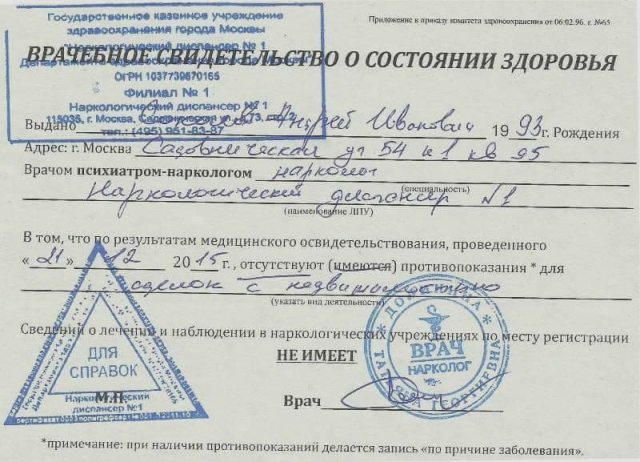 Государственное казенное учреждение
здравоохранения города Москвы
"Наркологический диспансер № 1
Департамента здравоохранения города Москвы"
ОГРН 1037739670165
Филиал № 1
Наркологический диспансер № 1
115035, г. Москва, Садовническая ул., д.73, стр.2
тел.: (495) 951-83-87
Приложение к приказу комитета здравоохранения от 06.02.96. г. №65
ВРАЧЕБНОЕ СВИДЕТЕЛЬСТВО О СОСТОЯНИИ ЗДОРОВЬЯ
Выдано Андрей Иванович 1993г. Рождения
Адрес: г. Москва Садовническая ул 54 к1 кв 95
Врачом психиатром-наркологом нарколог
(специальность)
Наркологический диспансер №1
(наименование ЛПУ)
В том, что по результатам медицинского освидетельствования, проведенного
«21» 12 2015г., отсутствуют (имеются) противопоказания * для
сделок с недвижимостью
(указать вид деятельности)
Сведений о лечении и наблюдении в наркологических учреждениях по месту регистрации
НЕ ИМЕЕТ
ДЛЯ
СПРАВОК
Наркологический
диспансер №1
М.П.
ВРАЧ
НАРКОЛОГ
ГЕОРГИЕВНА
Врач
*примечание: при наличии противопоказаний делается запись «по причине заболевания».